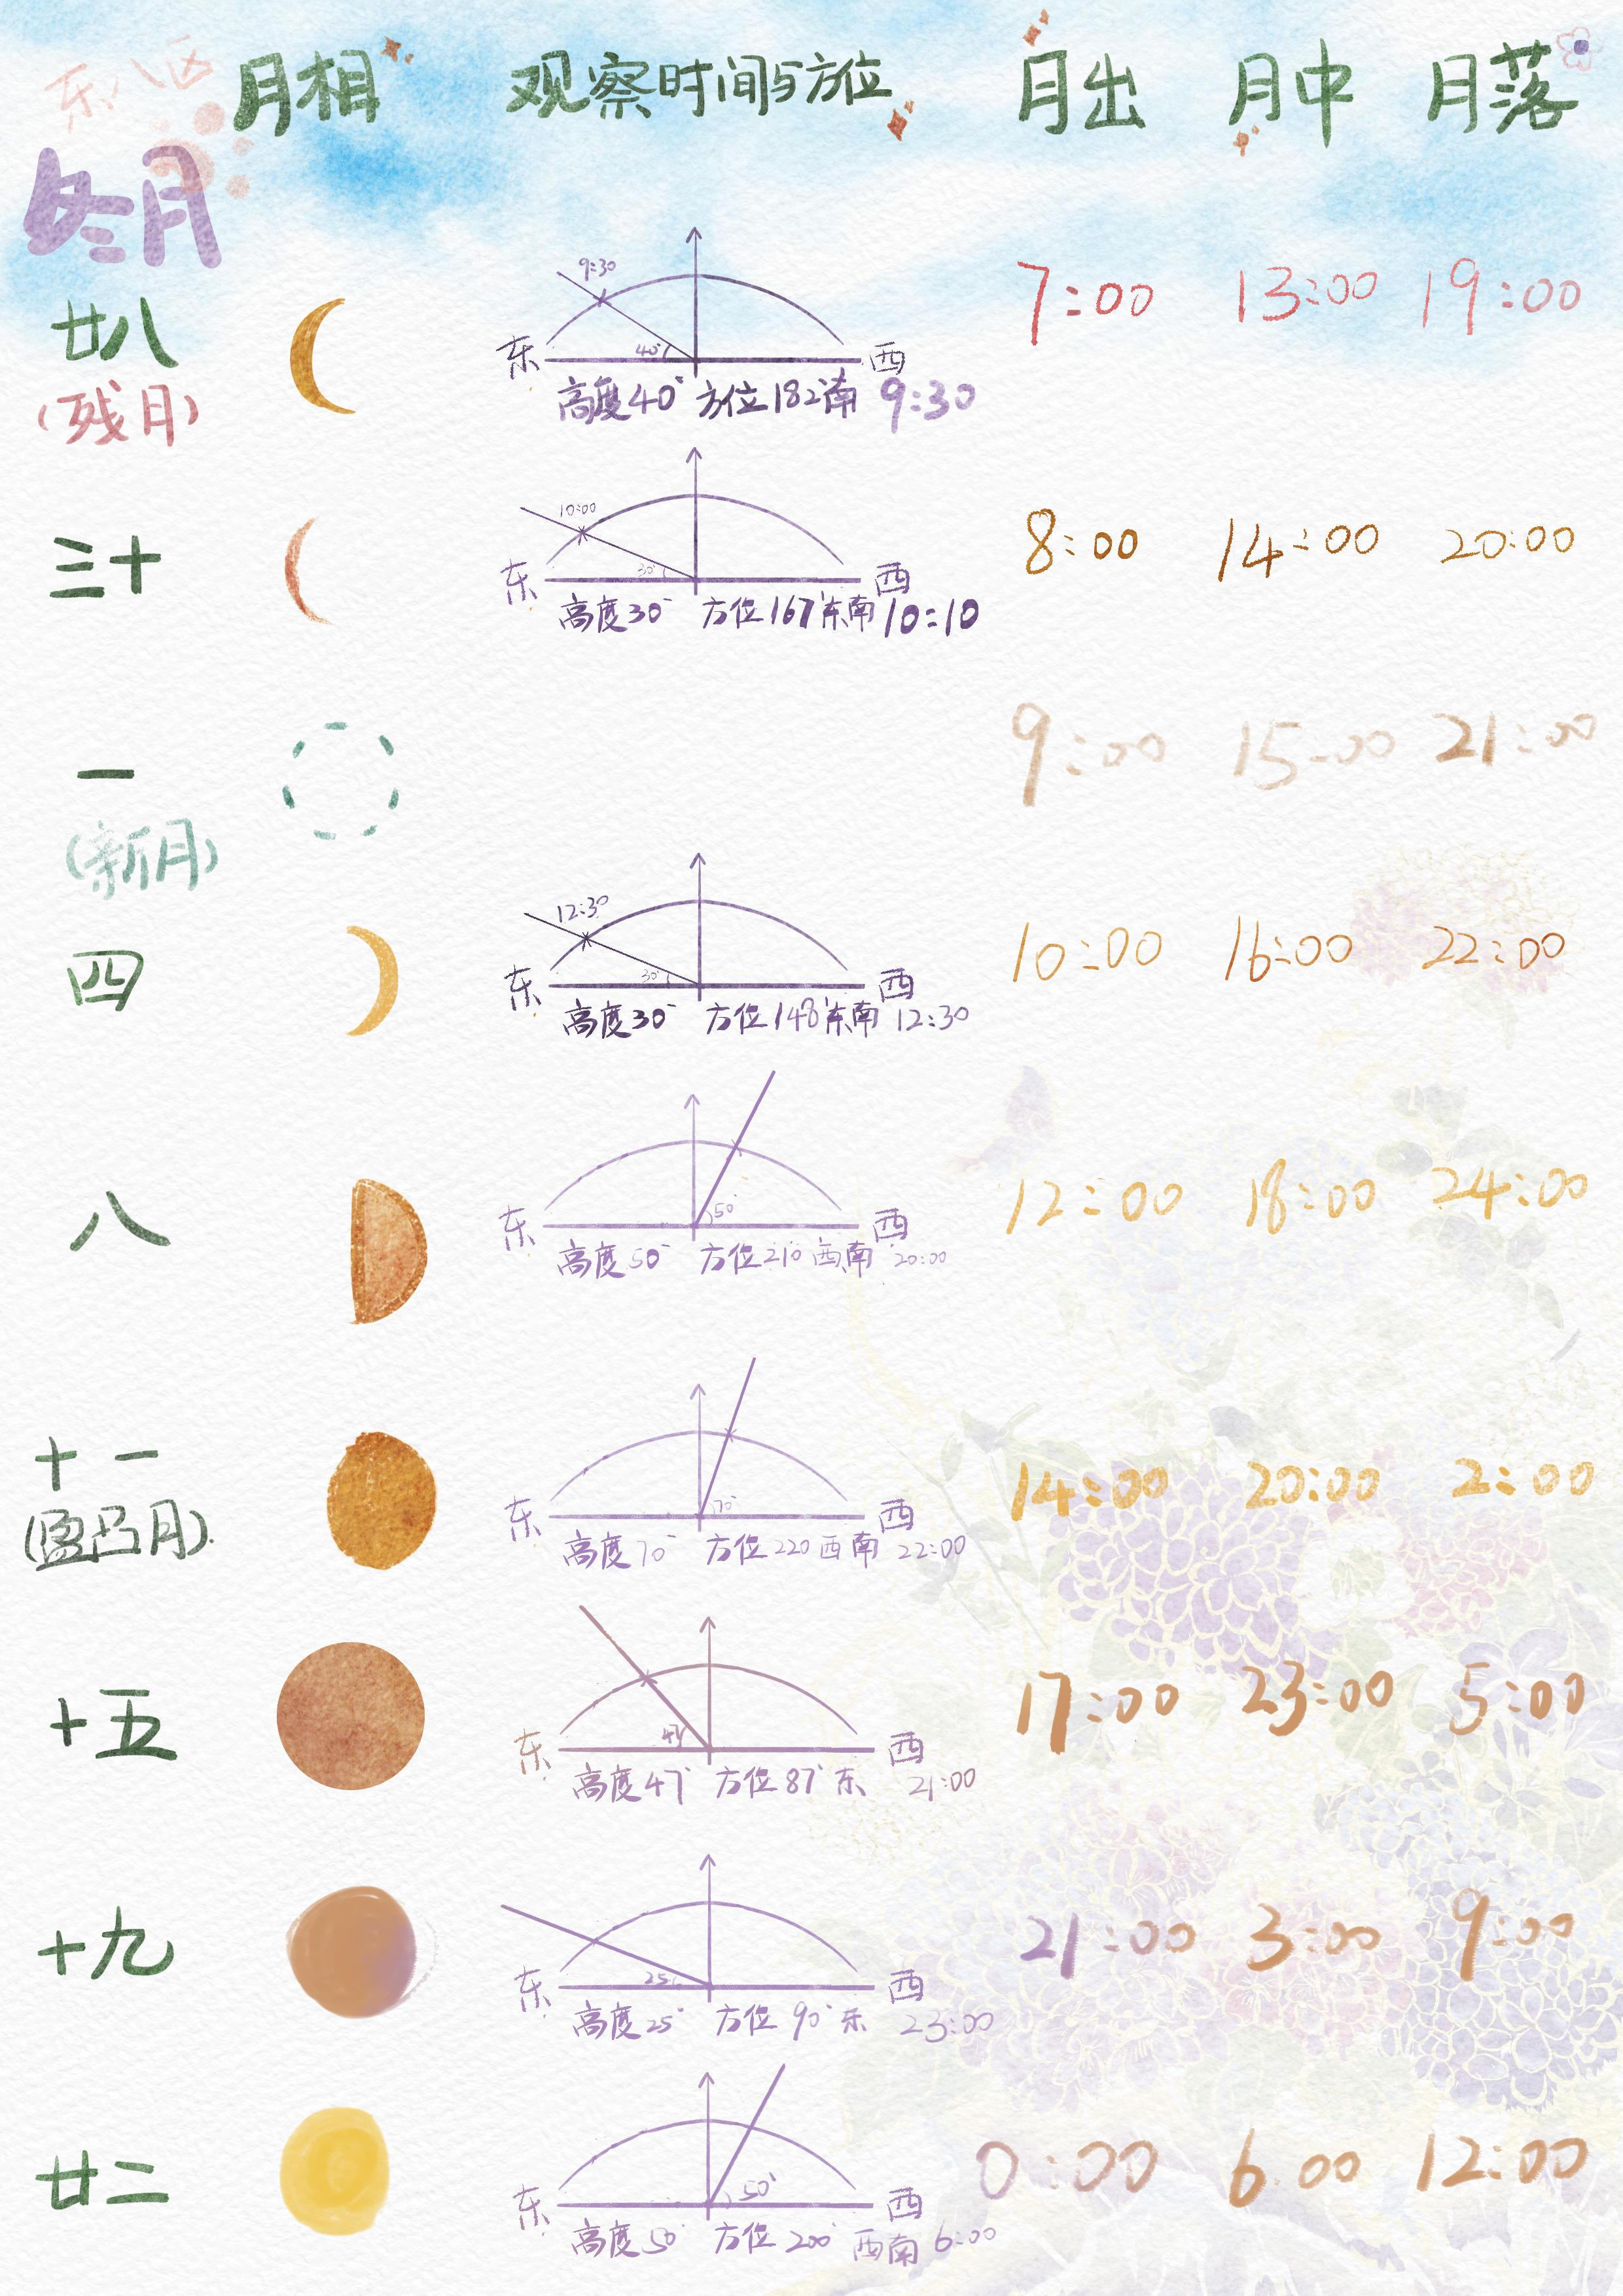 东八区
月相 观察时间与方位 月出 月中 月落
冬月
廿八
(残月)
9:30
40°
东 西
高度40° 方位182°南 9:30
7:00 13:00 19:00
三十
10:00
30°
东 西
高度30° 方位167°东南 10:10
8:00 14:00 20:00
一
(新月)
9:00 15:00 21:00
四
12:30
30°
东 西
高度30° 方位148°东南 12:30
10:00 16:00 22:00
八
50°
东 西
高度50° 方位210 西南 20:00
12:00 18:00 24:00
十一
(盈凸月).
70°
东 西
高度70° 方位220 西南 22:00
14:00 20:00 2:00
十五
47°
东 西
高度47° 方位87° 东 21:00
17:00 23:00 5:00
十九
25°
东 西
高度25° 方位 90° 东 23:00
21:00 3:00 9:00
廿二
50°
东 西
高度50° 方位 200° 西南 6:00
0:00 6:00 12:00